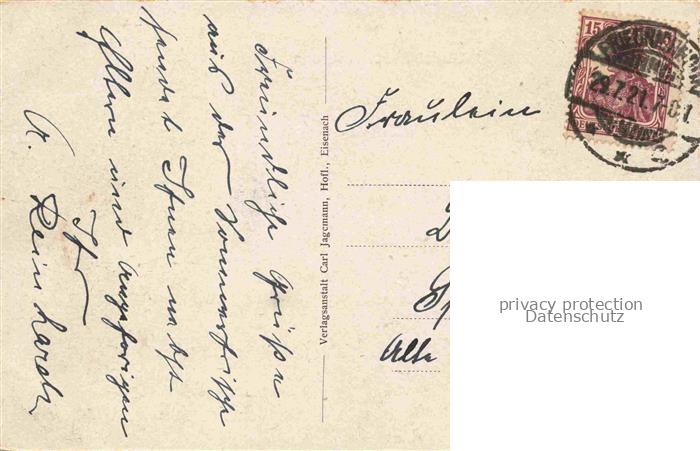 Freundliche Grüße
aus der Sommerfrische
sendet Ihnen nebst
Eltern und Angehörigen
Ihr
A. Reinhardt
Verlagsanstalt Carl Jagemann, Hofl., Eisenach
Fräulein
Alte
15
FRIEDRICHR
29.7.21.7-8
privacy protection
Datenschutz